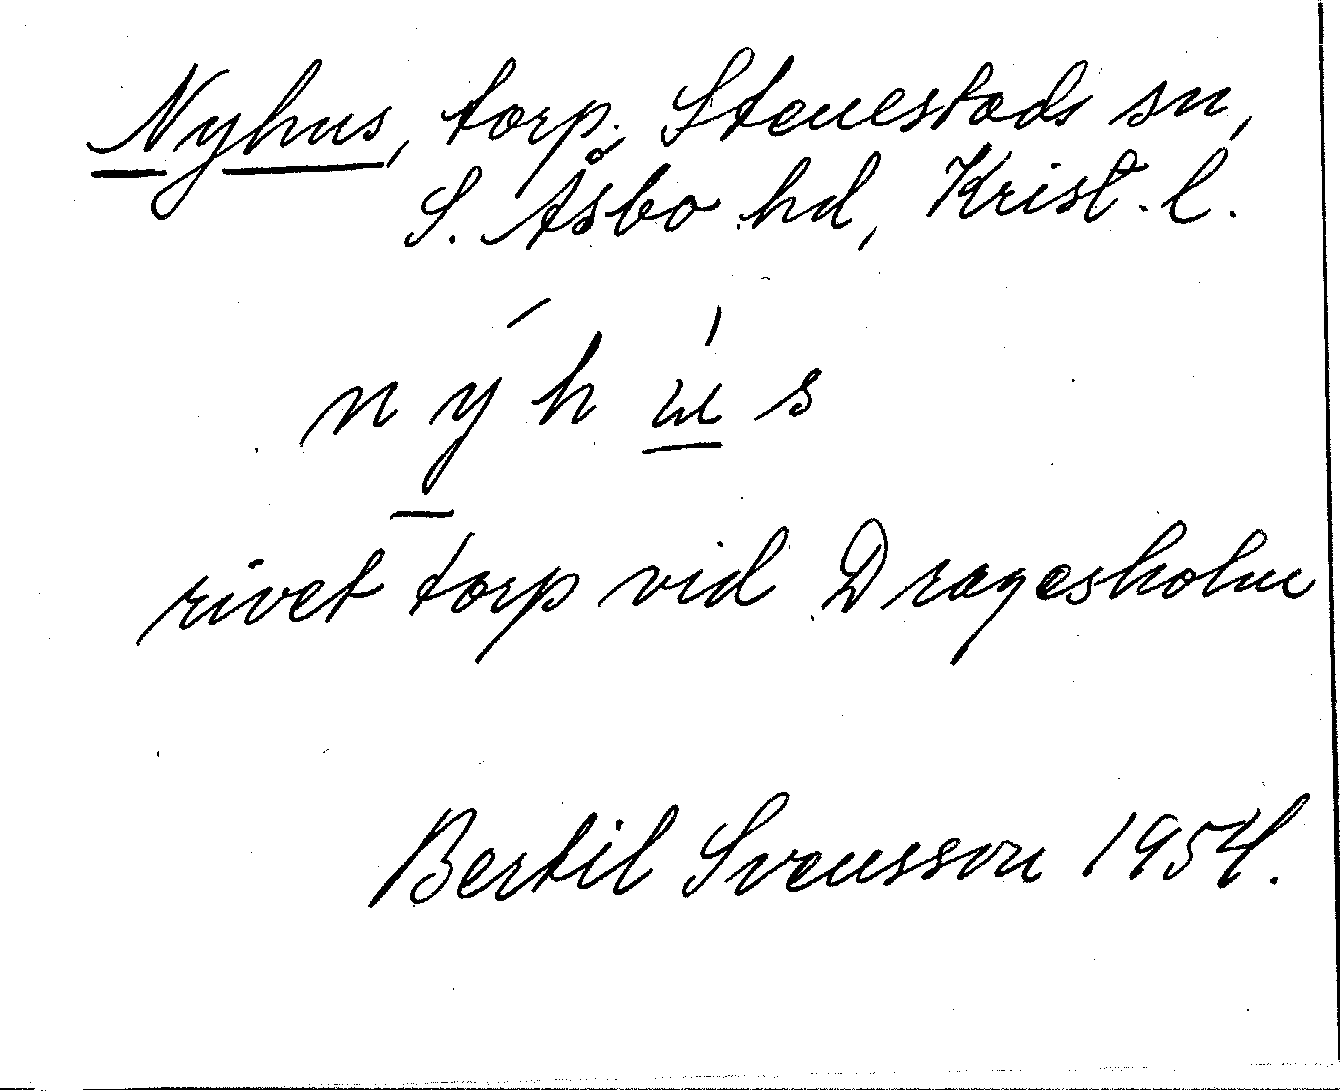 Nyhus, torp, Stenestads sn,
S. Åsbo hd, Krist. l.
nýhús
rivet torp vid Dragesholm
Bertil Svensson 1954.